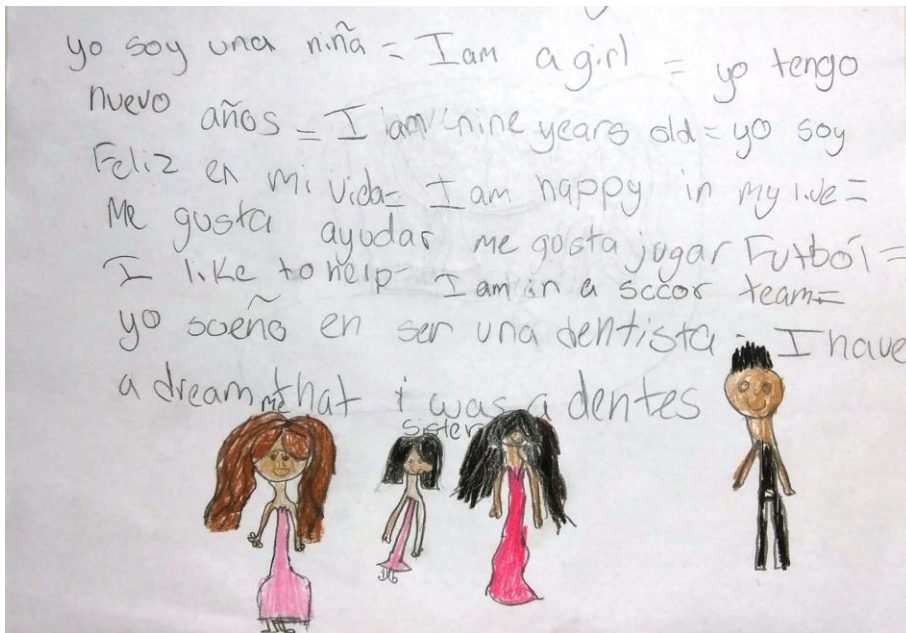 yo soy una niña = I am a girl = yo tengo
nuevo años = I am nine years old = yo soy
Feliz en mi vida= I am happy in my live =
Me gusta ayudar me gusta jugar Futból =
I like to help- I am in a soccor team=
yo sueño en ser una dentista - I have
a dream that i was a dentes
me
Sister